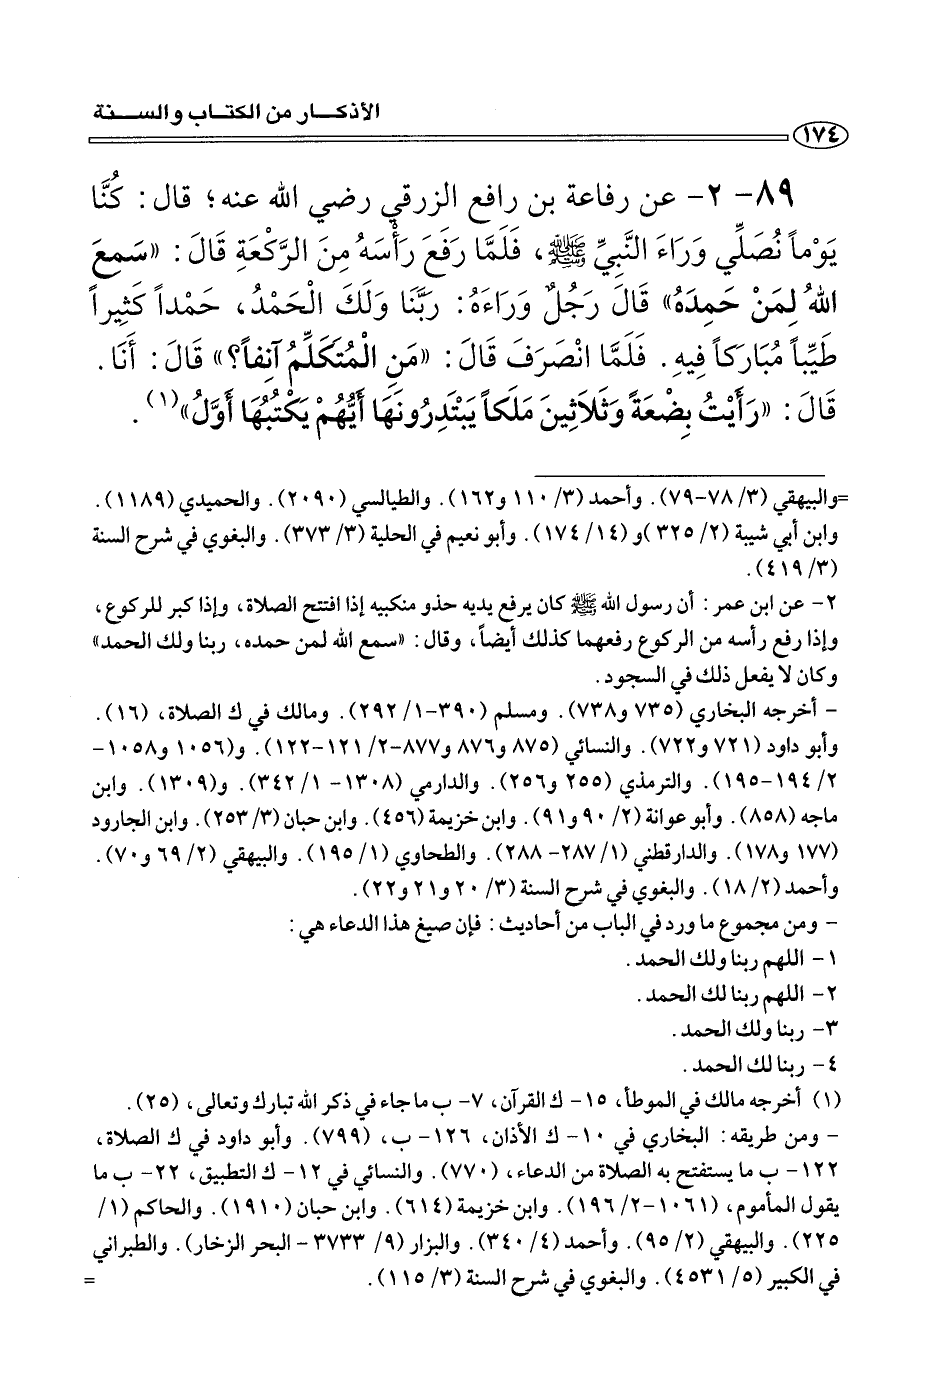 الأذكــار من الكتـاب والســنة
١٧٤
٨٩- ٢- عن رفاعة بن رافع الزرقي رضي الله عنه؛ قال: كُنَّا
يَوْماً نُصَلِّي وَرَاءَ النَّبِيِّ ﷺ، فَلَمَّا رَفَعَ رَأْسَهُ مِنَ الرَّكْعَةِ قَالَ: «سَمِعَ
اللهُ لِمَنْ حَمِدَهُ» قَالَ رَجُلٌ وَرَاءَهُ: رَبَّنَا وَلَكَ الْحَمْدُ، حَمْداً كَثِيراً
طَيِّباً مُبَارَكاً فِيهِ. فَلَمَّا انْصَرَفَ قَالَ: «مَنِ الْمُتَكَلِّمُ آنِفاً؟» قَالَ: أَنَا.
قَالَ: «رَأَيْتُ بِضْعَةً وَثَلَاثِينَ مَلَكاً يَبْتَدِرُونَهَا أَيُّهُمْ يَكْتُبُهَا أَوَّلُ»(١).
=والبيهقي (٣/ ٧٨-٧٩). وأحمد (٣/ ١١٠ و١٦٢). والطيالسي (٢٠٩٠). والحميدي (١١٨٩).
وابن أبي شيبة (٢/ ٣٢٥)و (١٤/ ١٧٤). وأبو نعيم في الحلية (٣/ ٣٧٣). والبغوي في شرح السنة
(٣/ ٤١٩).
٢- عن ابن عمر: أن رسول الله ﷺ كان يرفع يديه حذو منكبيه إذا افتتح الصلاة، وإذا كبر للركوع،
وإذا رفع رأسه من الركوع رفعهما كذلك أيضاً، وقال: «سمع الله لمن حمده، ربنا ولك الحمد»
وكان لا يفعل ذلك في السجود.
- أخرجه البخاري (٧٣٥ و٧٣٨). ومسلم (٣٩٠-١/ ٢٩٢). ومالك في ك الصلاة، (١٦).
وأبو داود (٧٢١ و٧٢٢). والنسائي (٨٧٥ و٨٧٦ و٨٧٧-٢/ ١٢١-١٢٢). و(١٠٥٦ و١٠٥٨-
٢/ ١٩٤-١٩٥). والترمذي (٢٥٥ و٢٥٦). والدارمي (١٣٠٨- ١/ ٣٤٢). و(١٣٠٩). وابن
ماجه (٨٥٨). وأبو عوانة (٢/ ٩٠ و٩١). وابن خزيمة (٤٥٦). وابن حبان (٣/ ٢٥٣). وابن الجارود
(١٧٧ و١٧٨). والدارقطني (١/ ٢٨٧- ٢٨٨). والطحاوي (١/ ١٩٥). والبيهقي (٢/ ٦٩ و٧٠).
وأحمد (٢/ ١٨). والبغوي في شرح السنة (٣/ ٢٠ و٢١ و٢٢).
- ومن مجموع ما ورد في الباب من أحاديث: فإن صيغ هذا الدعاء هي:
١- اللهم ربنا ولك الحمد.
٢- اللهم ربنا لك الحمد.
٣- ربنا ولك الحمد.
٤- ربنا لك الحمد.
(١) أخرجه مالك في الموطأ، ١٥- ك القرآن، ٧- ب ما جاء في ذكر الله تبارك وتعالى، (٢٥).
- ومن طريقه: البخاري في ١٠- ك الأذان، ١٢٦- ب، (٧٩٩). وأبو داود في ك الصلاة،
١٢٢- ب ما يستفتح به الصلاة من الدعاء، (٧٧٠). والنسائي في ١٢- ك التطبيق، ٢٢- ب ما
يقول المأموم، (١٠٦١-٢/ ١٩٦). وابن خزيمة (٦١٤). وابن حبان (١٩١٠). والحاكم (١/
٢٢٥). والبيهقي (٢/ ٩٥). وأحمد (٤/ ٣٤٠). والبزار (٩/ ٣٧٣٣ - البحر الزخار). والطبراني
في الكبير (٥/ ٤٥٣١). والبغوي في شرح السنة (٣/ ١١٥). =